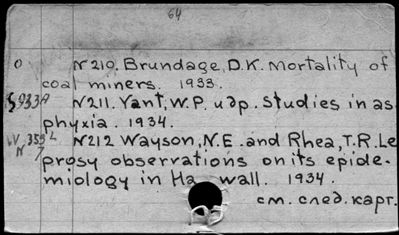 64
О №210. Brundage, D.K. Mortality of
coal miners. 1933.
№211. Yant, W.P. и др. Studies in as
phyxia. 1934.
№212 Wayson, N.E. and Rhea, T.R. Le
prosy observations on its epide-
miology in Ha wall. 1934.
см. след. карт.